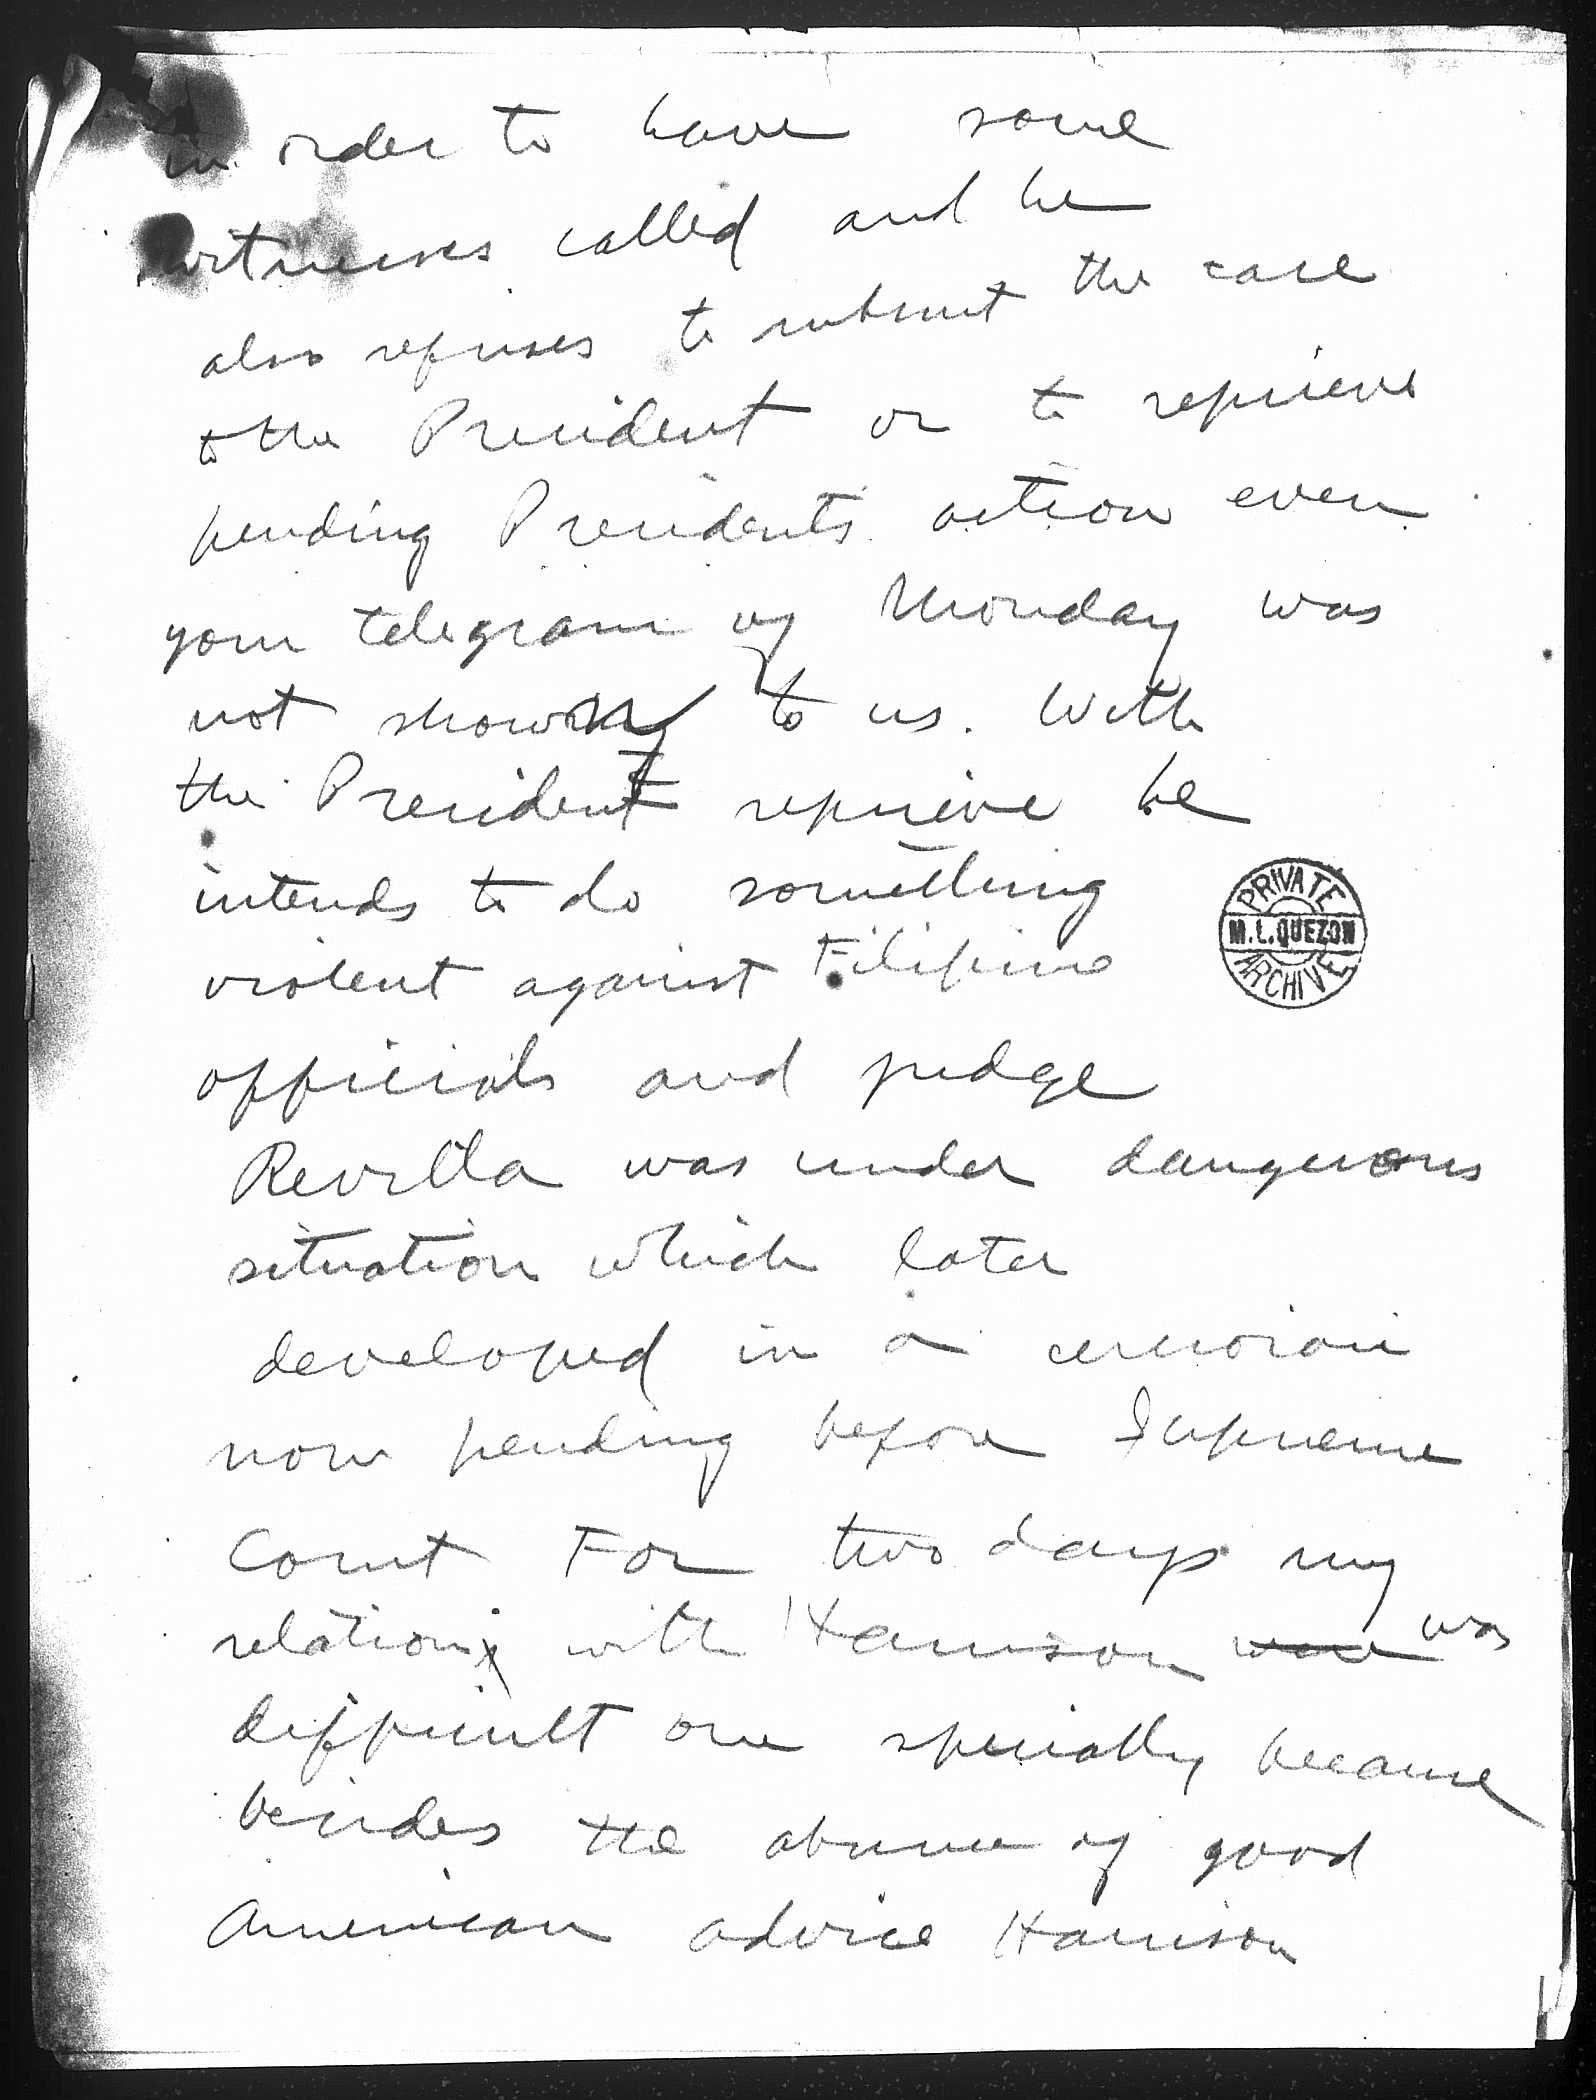 in order to have some
witnesses called and he
also refuses to submit the case
to the President or to reprieve
pending Presidents action even
your telegram of Monday was
not shown to us. With
the President reprieve he
intends to do something
violent against Filipino
officials and judge
Revilla was under dangerous
situation which later
developed in a cerciorari
now pending before Supreme
Court For two days my
relation with Harrison were was
difficult one specially because
besides the absence of good
American advice Harrison
PRIVATE
M.L.QUEZON
ARCHIVE